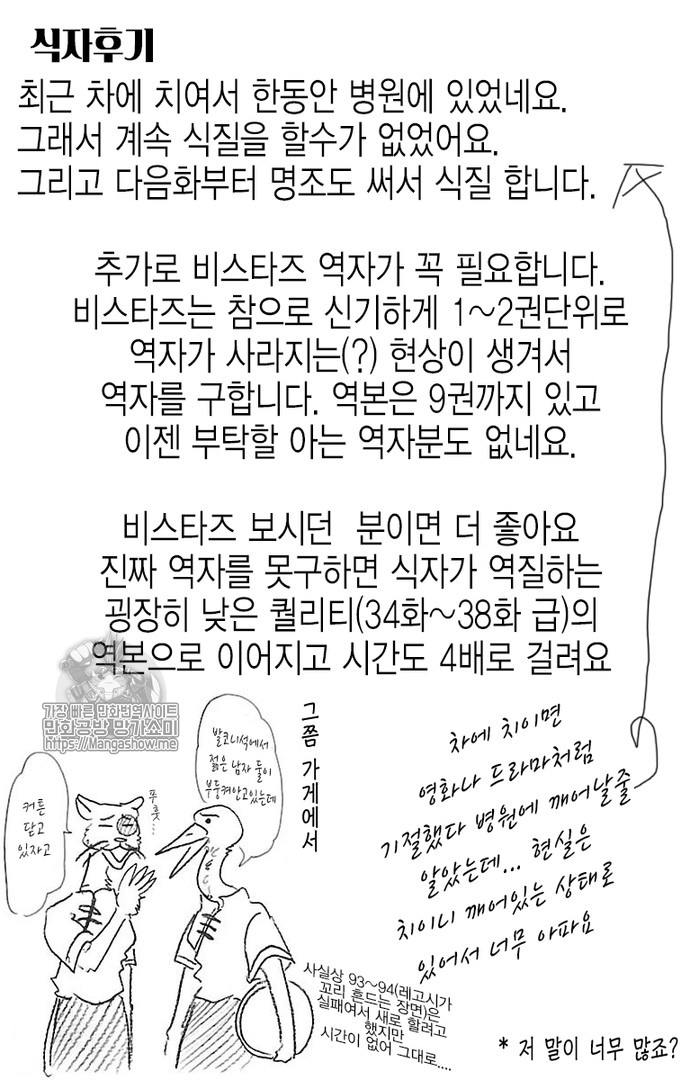 식자후기
최근 차에 치여서 한동안 병원에 있었네요.
그래서 계속 식질을 할수가 없었어요.
그리고 다음화부터 명조도 써서 식질 합니다.
추가로 비스타즈 역자가 꼭 필요합니다.
비스타즈는 참으로 신기하게 1~2권단위로
역자가 사라지는(?) 현상이 생겨서
역자를 구합니다. 역본은 9권까지 있고
이젠 부탁할 아는 역자분도 없네요.
비스타즈 보시던 분이면 더 좋아요
진짜 역자를 못구하면 식자가 역질하는
굉장히 낮은 퀄리티(34화~38화 급)의
역본으로 이어지고 시간도 4배로 걸려요
가장 빠른 만화번역사이트
만화공방 망가쇼미
https://Mangashow.me
그쯤 가게에서
발코니석에서
젊은 남자 둘이
부둥켜안고있는데
푸흣...
커튼
닫고
있자고
차에 치이면
영화나 드라마처럼
기절했다 병원에 깨어날줄
알았는데... 현실은
치이니 깨어있는 상태로
있어서 너무 아파요
사실상 93~94(레고시가
꼬리 흔드는 장면)은
실패여서 새로 할려고
했지만
시간이 없어 그대로....
* 저 말이 너무 많죠?